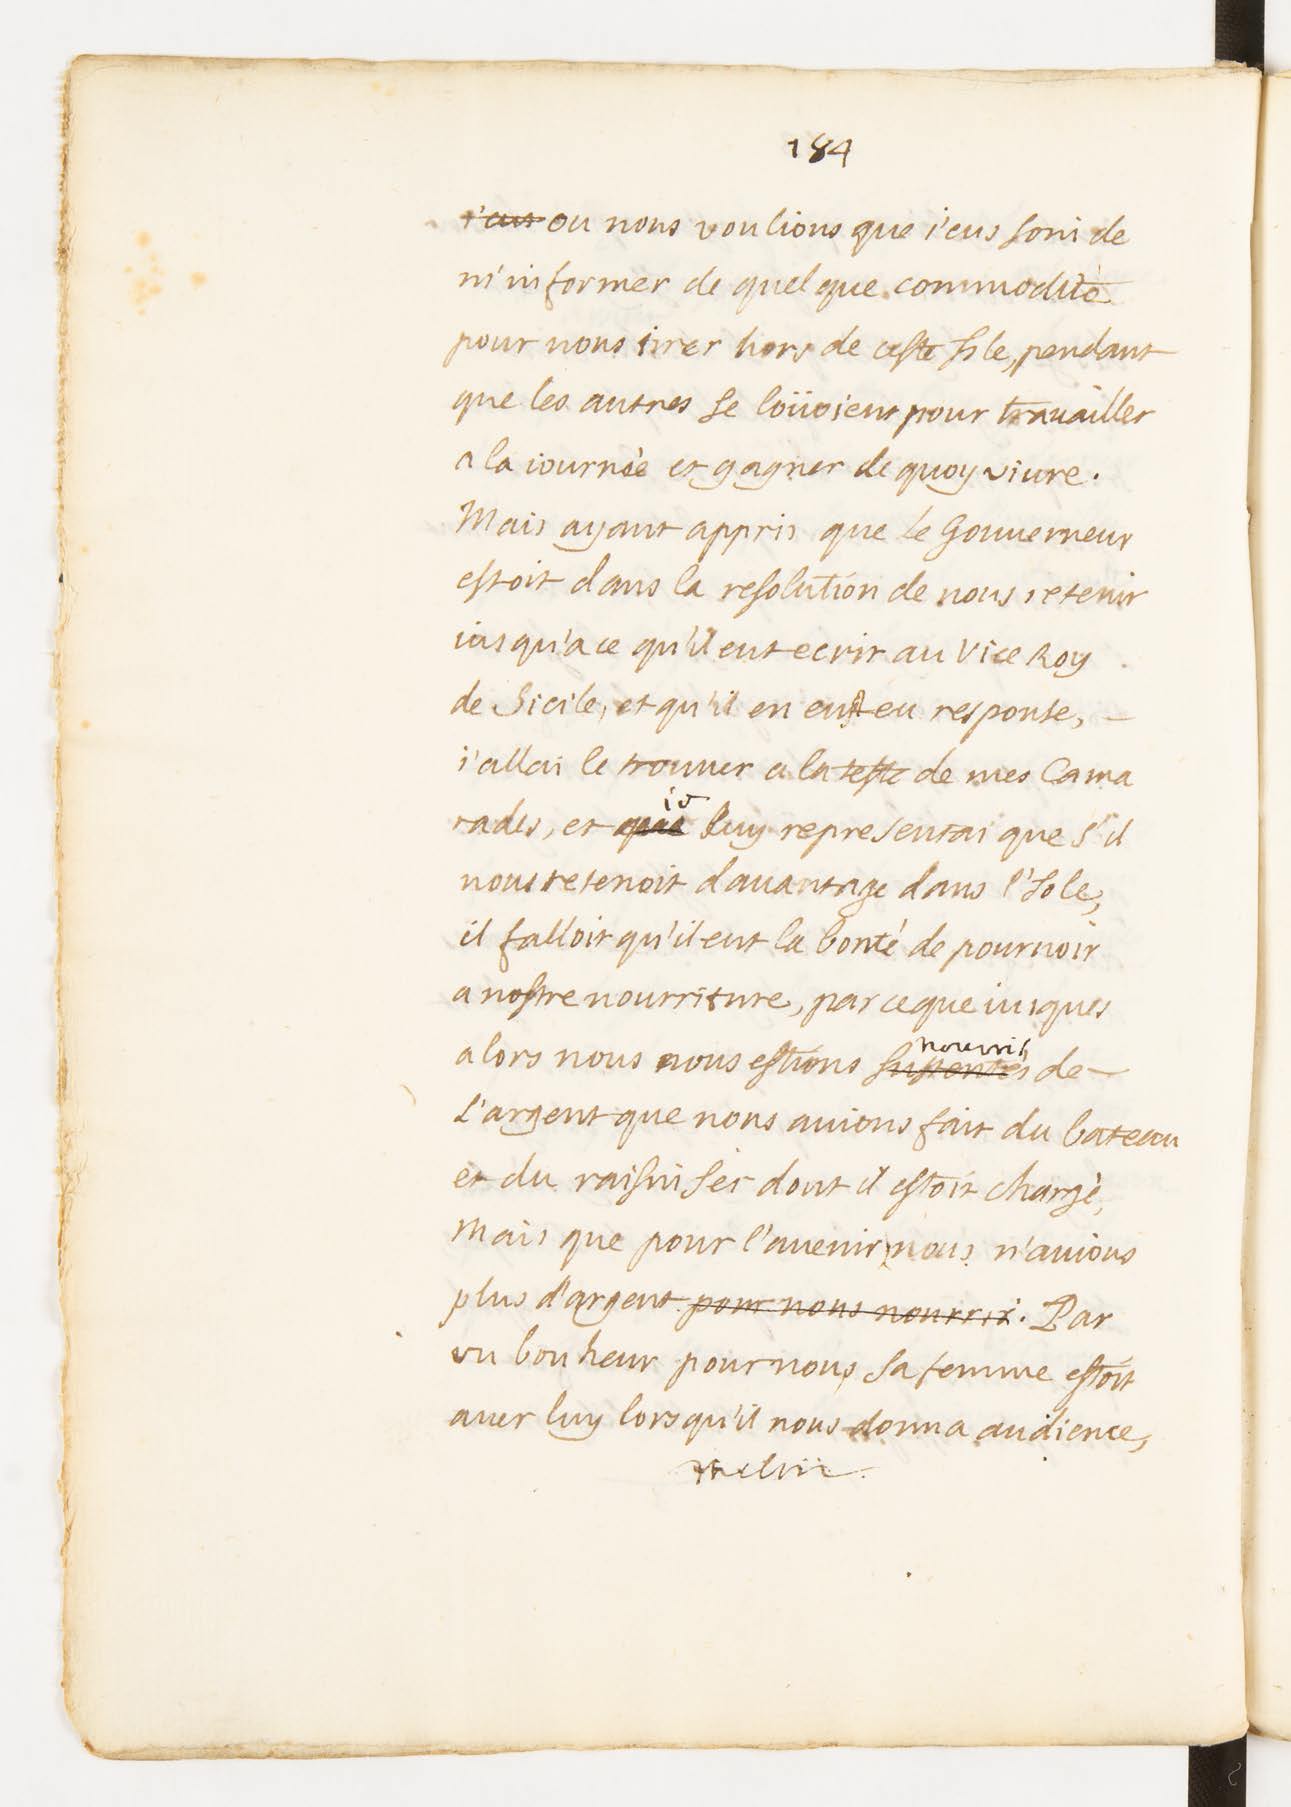 184
i'eus ou nous voulions que i'eus soin de
m'informer de quelque commodité
pour nous tirer hors de ceste Isle, pendant
que les autres se loüoient pour trauailler
a la iournée et gagner de quoy viure.
Mais ayant appris que le Gouuerneur
estoit dans la resolution de nous retenir
iusqu'a ce qu'il eut ecrit au Vice Roy
de Sicile, et qu'il en eust eu responte,
i'allai le trouuer a la teste de mes Cama
rades, et que ie luy representai que s'il
nous retenoit dauantage dans l'Isle,
il falloit qu'il eut la bonté de pouruoir
a nostre nourriture, parceque iusques
alors nous nous estions sustentés nourris de
l'argent que nous auions fait du bateau
et du raisin sec dont il estoit chargé,
Mais que pour l'auenir nous n'auions
plus d'argent pour nous nourrir. Par
vn bonheur pour nous sa femme estoit
auec luy lorsqu'il nous donna audience,